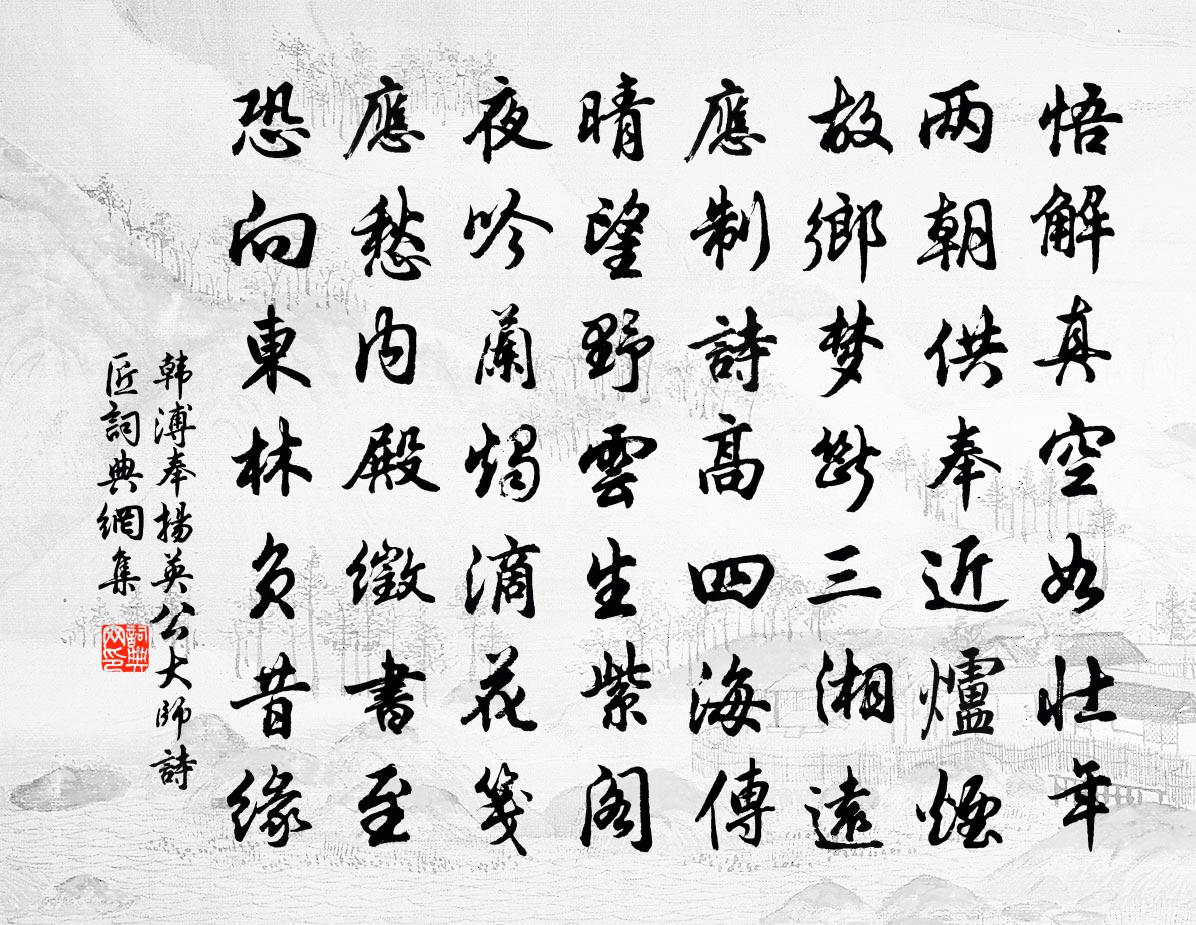 悟解真空如壮年
两朝供奉近爐煙
故鄉梦断三湘遠
應制詩高四海傳
晴望野雲生紫阁
夜吟蘭燭滴花箋
應愁内殿徵書至
恐向東林負昔緣
韩溥奉揚英公大師詩
匠詞典網集
詞典
网印